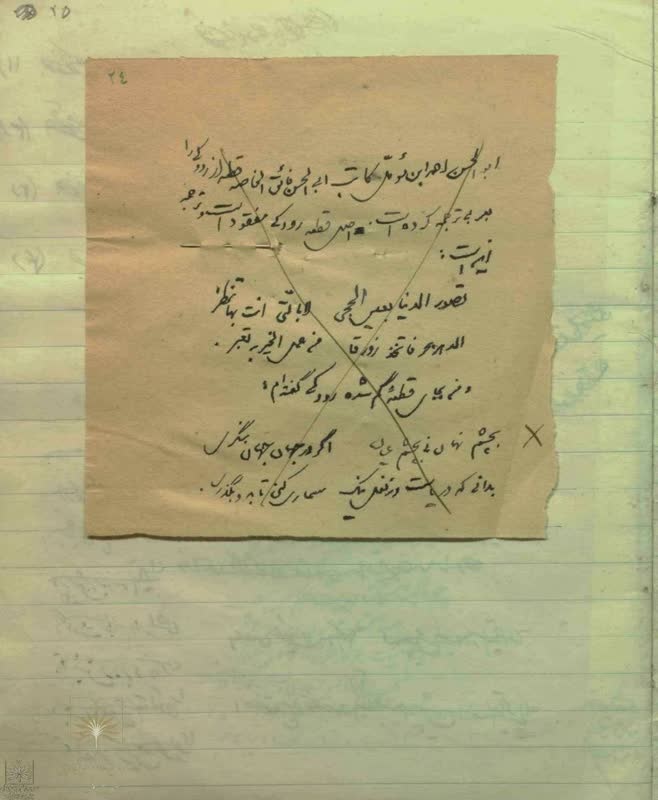 ۲۵
۲۴
ابوالحسن احمد ابن مؤمل کاتب ابی الحسن فائق الخاصه قطعه‌ای از رودکی را
بعربی ترجمه کرده است. اصل قطعه رودکی مفقود است و ترجمه
این است:
تصور الدنیا بعین الحجی لا بالتی انت بها تنظر
الدهر بحر فاتخذ زورقا من عمل الخیر به تعبر.
و من بجای قطعهٔ گم شده رودکی گفته‌ام:
بچشم نهان نی بچشم عیان اگر در جهان جهان بنگری
×
بدانی که دریاست وز فعل نیک سماری کنی تا بدو بگذری.